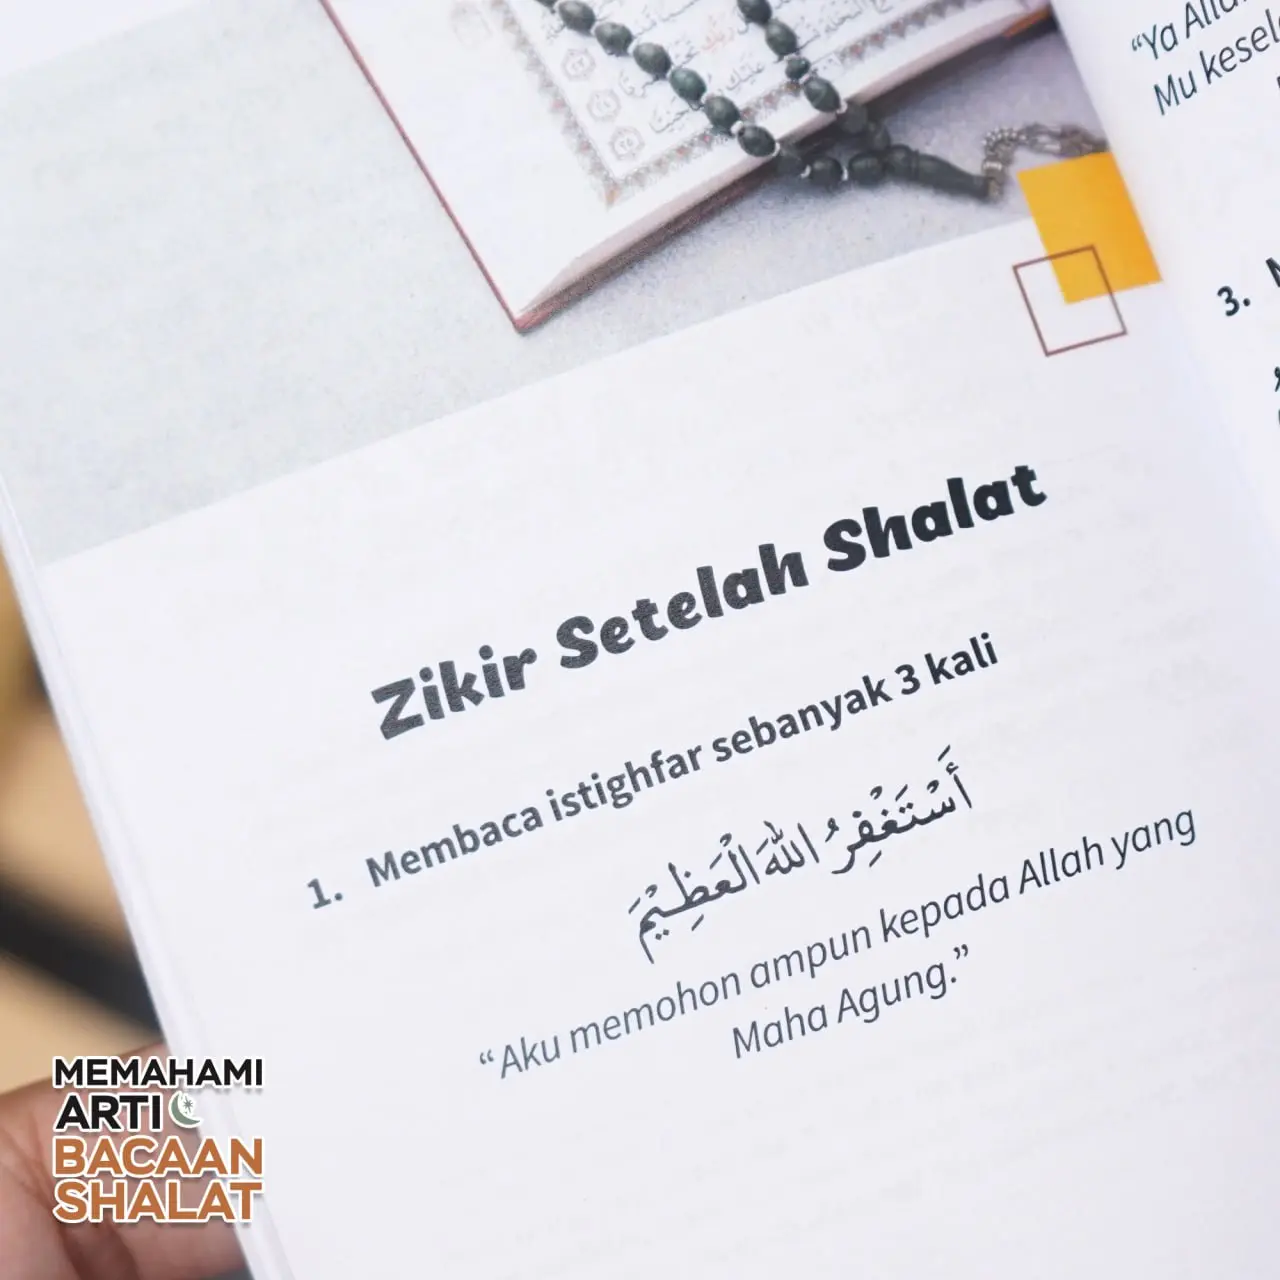 Zikir Setelah Shalat
1. Membaca istighfar sebanyak 3 kali
أَسْتَغْفِرُ اللهَ الْعَظِـيْمَ
“Aku memohon ampun kepada Allah yang
Maha Agung.”
“Ya Allah
Mu
3.
MEMAHAMI
ARTI
BACAAN
SHALAT